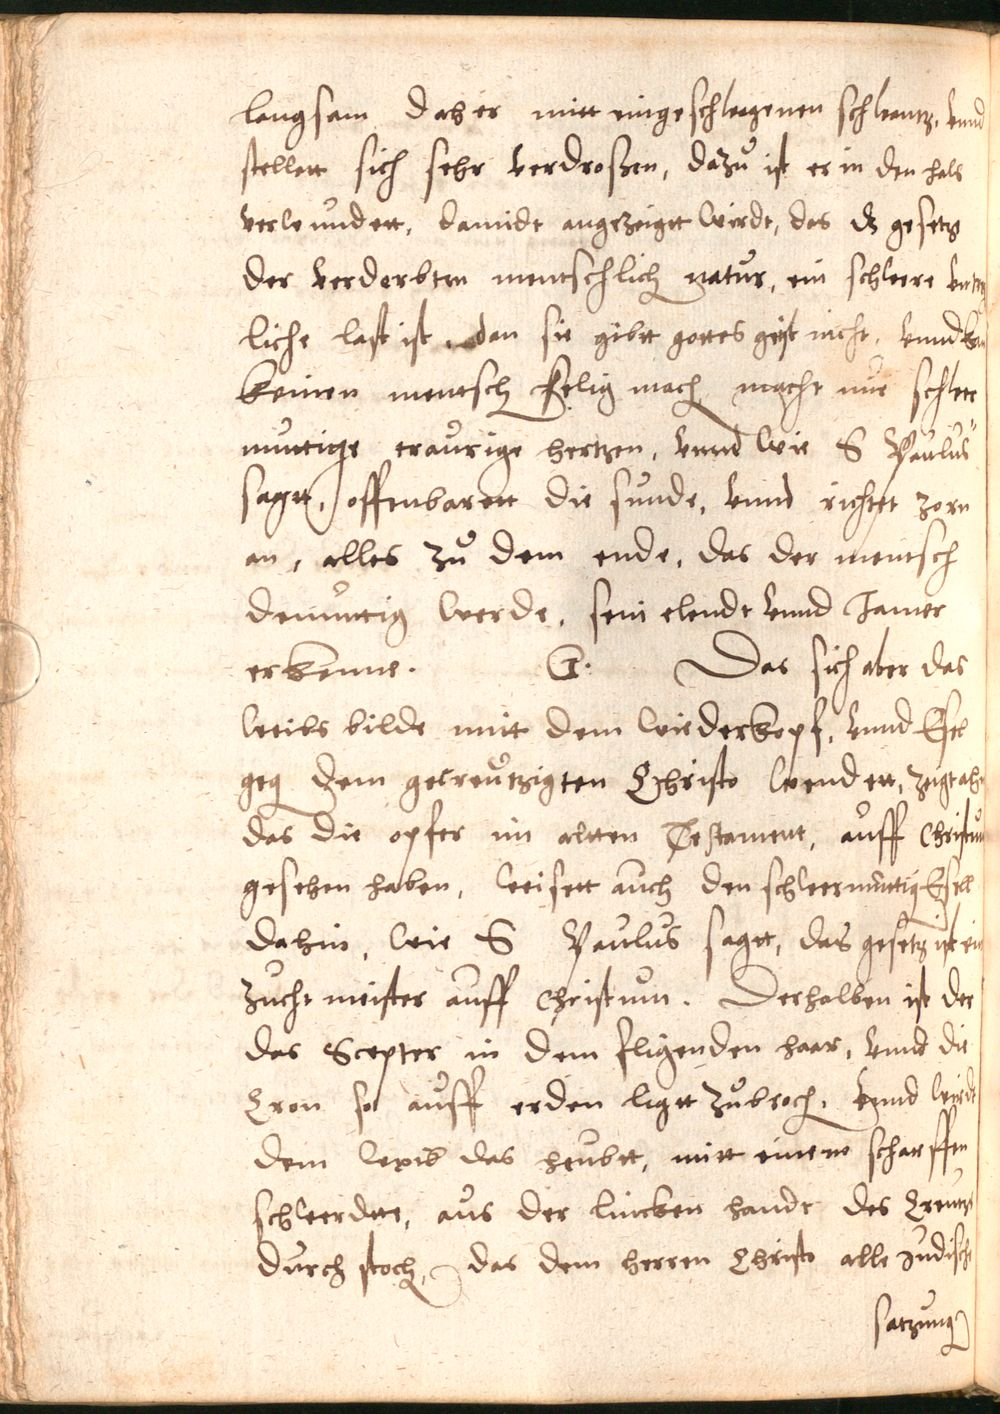 langsam daher mitt eingeschlagenen schwantz, vnnd
stellett sich sehr verdroßen, dazu ist er in den hals
verwundett, damidt angezeigtt wirdt, das dz gesetz
der verderbten mentschlich natur, ein schwere
liche last ist, dan sie gibtt gottes geist nicht, vnnd
keinen mentsch selig mach, macht nur schwer
muttige traurige hertzen, vnnd wie S Paulus
sagtt, offenbarett die sunde, vnnd richtet zorn
an, alles zu dem ende, das der mentsch
demuttig werde, sein elendt vnnd Jamer
erkenne. G. Das sich aber das
weibs bilde mitt dem wiederkopf, vnnd Esel
geg dem gecreutzigten Christo wendett, zeigt ahn
das die opfer im altten Testament, auff Christum
gesehen haben, weisett auch den schwermuttig Esell
dahin, wie S Paulus sagtt, das gesetz ist ein
zucht meister auff Christum. Derhalben ist der
das Scepter in dem fligenden haar, vnnd die
Cron so auff erden ligtt zubroch, vnnd wirdt
dem weib das heubtt, mitt einem scharffen
schwerdtt, aus der lincken handt des Creutz
durch stoch, das dem herren Christo alle Judische
satzung